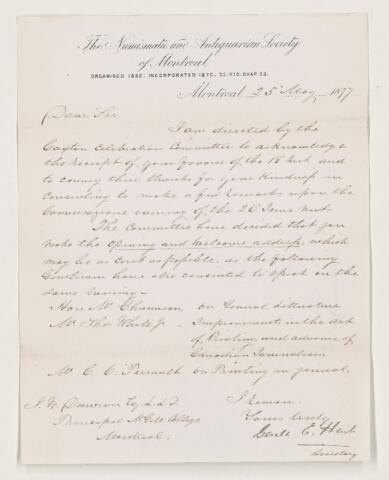 The Numismatic and Antiquarian Society
of Montreal
ORGANISED 1862, INCORPORATED 1870, 33. VIC. CHAP. 53.
Montreal 25 May 1877.
Dear Sir
I am directed by the
Caxton Celebration Committee to acknowledge
the receipt of your favour of the 18 Inst and
to convey their thanks for your kindness in
consenting to make a few remarks upon the
Conversazione evening of the 26 June next.
The Committee have decided that you
make the opening and welcome address, which
may be as curt as possible, as the following
Gentlemen have also consented to speak on the
same evening —
Hon Mr Chauveau, on General Litterature
Mr Tho White Jr Improvements in the Art
of Printing and advance of
Canadian Journalism
Mr C. C. Perrault on Printing in general.
J. W. Dawson Esq L.L.D
Principal McGill College
Montreal.
I remain
Yours truly
Gerald E. Hart
Secretary